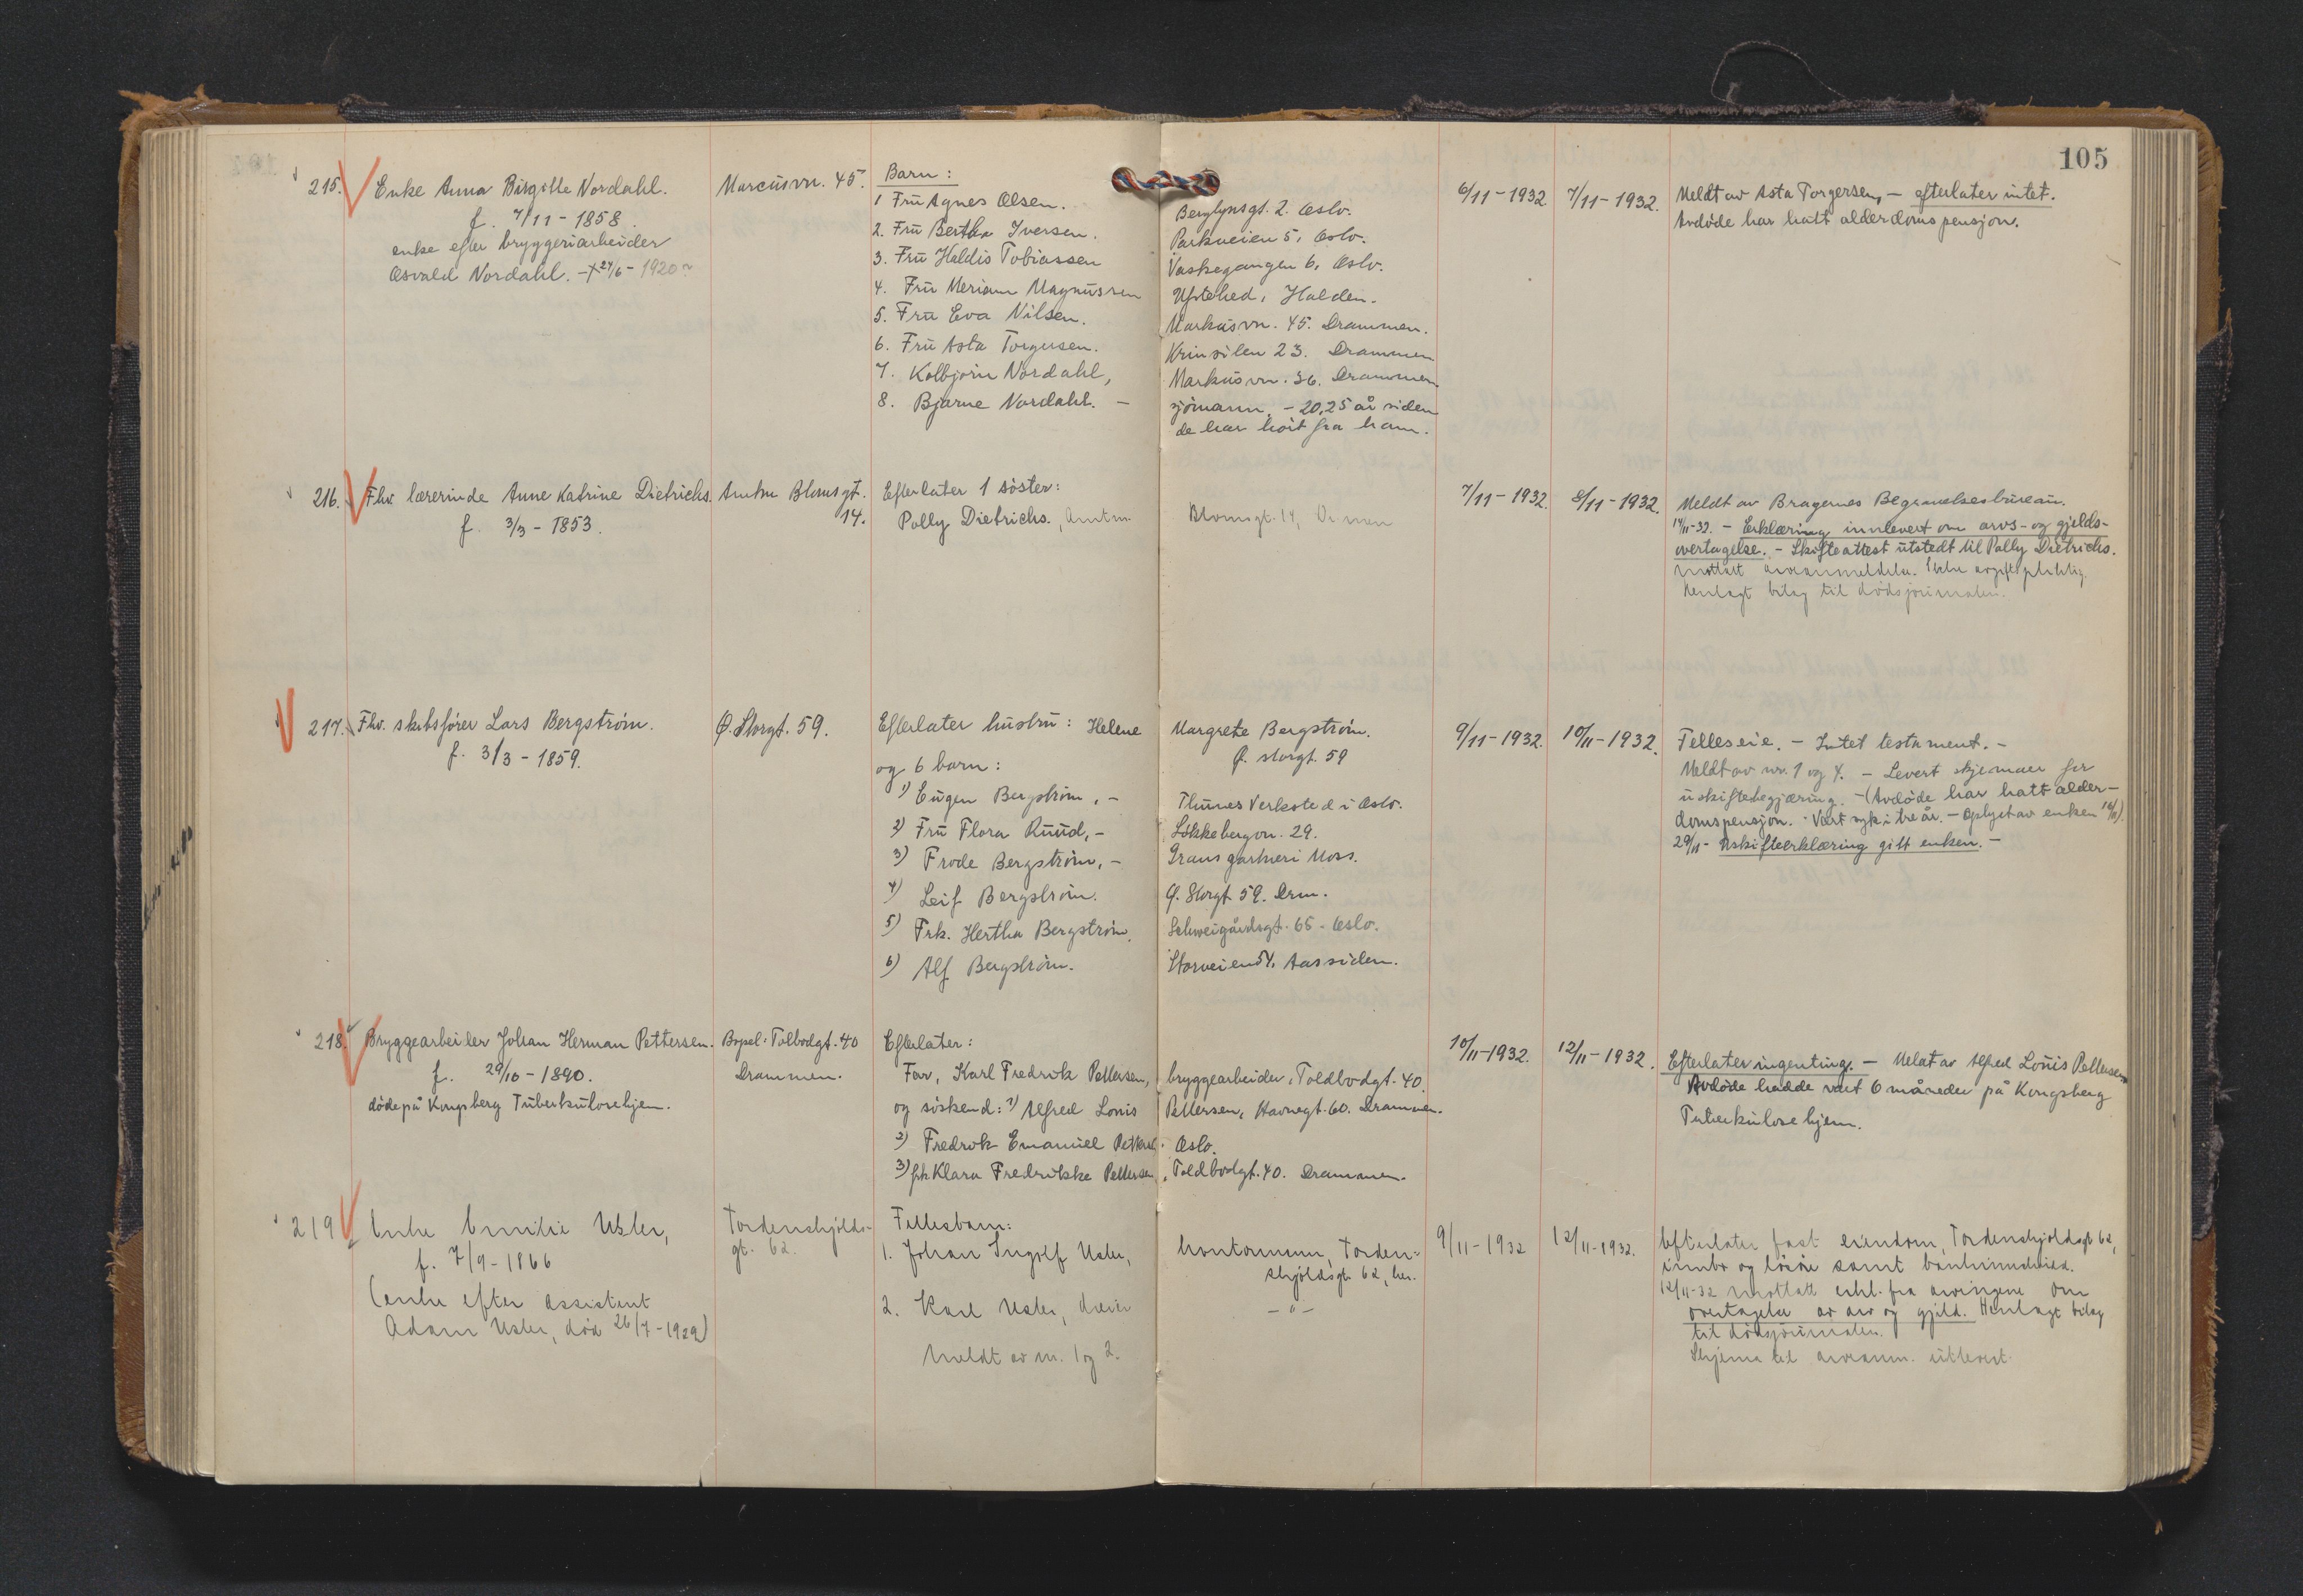 105
215. Enke Anna Birgitte Nordahl.
f. 7/11 - 1858.
enke efter bryggeriarbeider
Osvald Nordahl. - + 24/6 - 1920?
Marcusvn. 45.
Barn:
1 Fru Agnes Olsen. Berglynsgt. 2. Oslo.
2. Fru Bertha Iversen. Parkveien 5, Oslo.
3. Fru Haldis Tobiassen Vaskegangen 6, Oslo.
4. Fru Meriam Magnussen Halden.
5. Fru Eva Nilsen. Markusvn. 45. Drammen.
6. Fru Asta Torgersen. 23. Drammen
7. Kolbjørn Nordahl, Markusvn. 36. Drammen
8. Bjarne Nordahl. - sjømann, - 20,25 år siden
de har hørt fra ham.
6/11-1932. 7/11-1932.
Meldt av Asta Torgersen, - efterlater intet.
Avdøde har hatt alderdomspensjon.
216. Fhv. lærerinde Anne Katrine Dietrichs.
f. 3/3 - 1853.
Amtm Blomsgt.
14.
Efterlater 1 søster:
Polly Dietrichs., Amtm. Blomsgt. 14, Dr.men
7/11-1932. 8/11-1932.
Meldt av Bragernes Begravelsesbureau.
14/11-32. - Erklæring innlevert om arvs- og gjelds-
overtagelse. - Skifteattest utstedt til Polly Dietrichs.
Mottatt arveanmeldelse. Ikke avgiftspliktig.
Henlagt bilag til dødsjournalen.
217. Fhv. skibsfører Lars Bergstrøm.
f. 3/3 - 1859.
Ø. Storgt. 59.
Efterlater hustru: Helene Margrete Bergstrøm.
Ø. Storgt. 59
og 6 barn:
1) Eugen Bergstrøm, - Thunes Verksted i Oslo.
2) Fru Flora Ruud, - Løkkebergvn. 29.
3) Frode Bergstrøm, - Grans gartneri Moss.
4) Leif Bergstrøm. Ø. Storgt. 59. Drm.
5) Frk. Hertha Bergstrøm. Schweigårdsgt. 65 - Oslo.
6) Alf Bergstrøm. Storveien 54, Aassiden.
9/11-1932. 10/11-1932.
Felleseie. - Intet testament. -
Meldt av nr. 1 og 4. - Levert skjemaer for
uskiftebegjæring. - (Avdøde har hatt alder-
domspensjon. - Vært syk i tre år. - Oplyst av enken 16/11).
29/11 - Uskifteerklæring gitt enken. -
218. Bryggearbeider Johan Herman Pettersen.
f. 29/10 - 1890.
døde på Kongsberg Tuberkulosehjem.
Bopel: Tolbodgt. 40
Drammen.
Efterlater:
Far, Karl Fredrik Pettersen, bryggearbeider, Toldbodgt. 40.
og søskend: 1) Alfred Louis Pettersen, Havnegt. 60. Drammen.
2) Fredrik Emanuel Pettersen. Oslo.
3) frk Klara Fredrikke Pettersen, Toldbodgt. 40. Drammen.
10/11-1932. 12/11-1932.
Efterlater ingenting. - Meldt av Alfred Louis Pettersen
Avdøde hadde vært 6 måneder på Kongsberg
Tuberkulosehjem.
219 Enke Emilie Usler,
f. 7/9 - 1866
(enke efter assistent
Adam Usler, død 26/7 - 1929)
Tordenskjolds-
gt. 62.
Fellesbarn:
1. Johan Ingolf Usler, kontormann, Torden-
skjoldsgt. 62, her.
2. Karl Usler, dreier - " -
Meldt av nr. 1 og 2.
9/11-1932 12/11-1932.
Efterlater fast eiendom, Tordenskjoldsgt. 62,
innbo og løsøre samt bankinnskudd.
12/11-32 mottatt erkl. fra arvingene om
overtagelse av arv og gjeld. Henlagt bilag
til dødsjournalen.
Skjema til arveanm. utlevert.